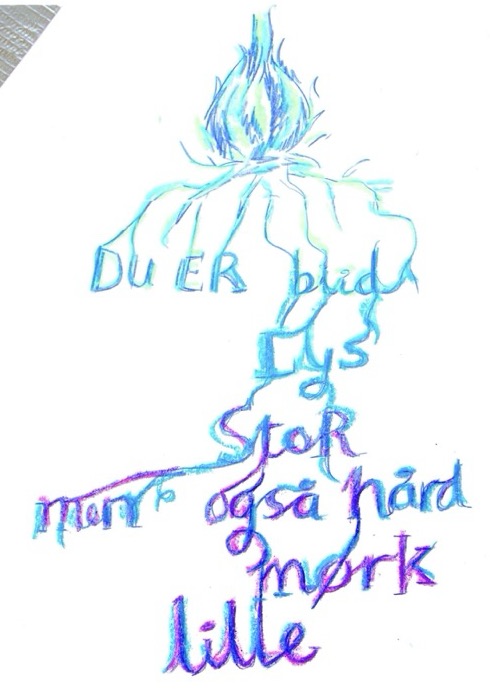 DU ER blid
Lys
StoR
men også hård
mørk
lille